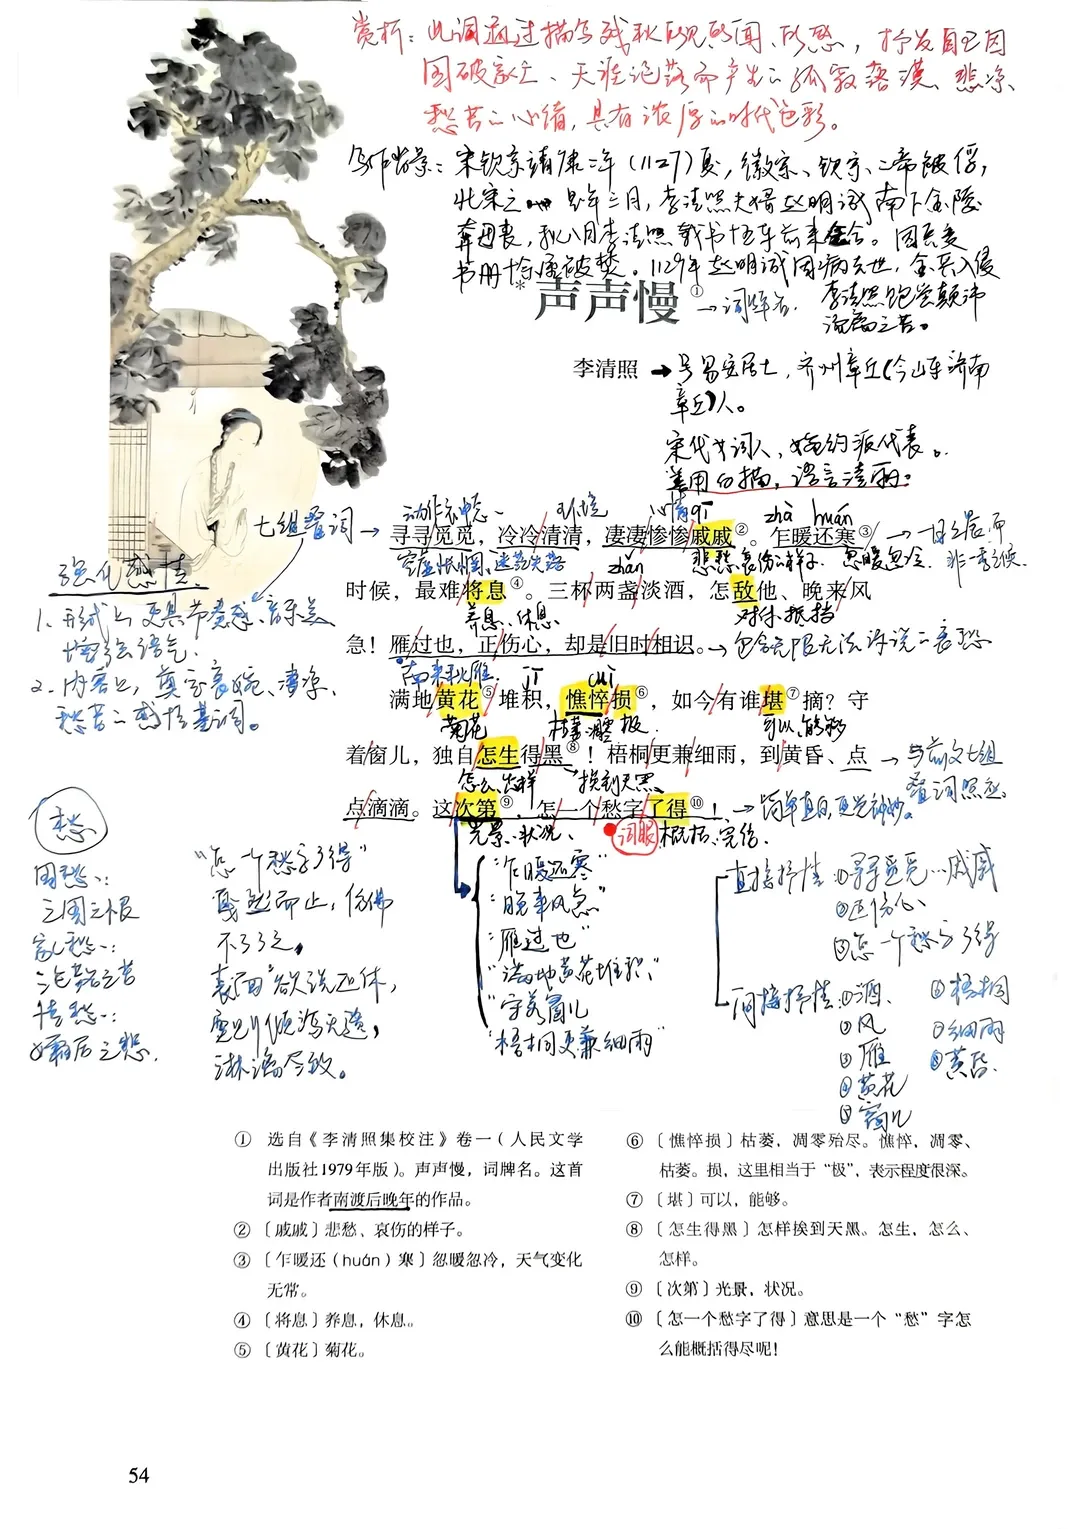 赏析：此词通过描写残秋所见所闻、所愁，抒发自己因
国破家亡、天涯沦落而产生的孤寂落漠、悲凉、
愁苦的心绪，具有浓厚的时代色彩。
写作背景：宋钦宗靖康二年（1127）夏，徽宗、钦宗二帝被俘，
北宋亡 是年三月，李清照夫婿赵明诚南下金陵
奔母丧，秋八月李清照载书十五车前来会合。因兵变
书册十余屋被焚。1129年赵明诚因病去世，金兵入侵
李清照饱尝颠沛
流离之苦。
*声声慢①
→词牌名.
李清照
→号易安居士，齐州章丘(今山东济南
章丘)人。
宋代女词人，婉约派代表。
善用白描，语言清丽。
七组叠词→
动作神态
环境
心情 qī
zhà huán
寻寻觅觅，冷冷清清，凄凄惨惨戚戚②。乍暖还寒③
空虚惆怅、迷茫失落
zhǎn
悲愁、哀伤的样子.
忽暖忽冷.
时候，最难将息④。三杯两盏淡酒，怎敌他、晚来风
养息、休息.
对付、抵挡
急！雁过也，正伤心，却是旧时相识。
→包含无限无法诉说的哀愁
南来秋雁.
jī
cuì
满地黄花⑤堆积，憔悴损⑥，如今有谁堪⑦摘？守
菊花
枯萎凋零 极
可以、能够
着窗儿，独自怎生得黑⑧！梧桐更兼细雨，到黄昏、点
→与前文七组
叠词照应。
怎么、怎样
挨到天黑
点滴滴。这次第⑨，怎一个愁字了得⑩！
→简单直白,更觉神妙。
光景、状况、
词眼
概括、完结
强化感情.
1、形式上更具节奏感、音乐美
增强语气.
2、内容上，奠定哀婉、凄凉、
愁苦的感情基调。
愁
国愁：
亡国之恨
家愁：
沦落之苦
情愁：
孀居之愁.
“怎一个愁字了得”
戛然而止，仿佛
不了了之，
表面“欲说还休，
实则倾泻无遗，
淋漓尽致。
“乍暖还寒”
“晚来风急”
“雁过也”
“满地黄花堆积”
“守着窗儿
“梧桐更兼细雨”
直接抒情：①寻寻觅觅…戚戚
②正伤心
③怎一个愁字了得
间接抒情：①酒、
②风
③雁
④黄花
⑤窗儿
⑥梧桐
⑦细雨
⑧黄昏.
① 选自《李清照集校注》卷一（人民文学
出版社1979年版）。声声慢，词牌名。这首
词是作者南渡后晚年的作品。
② 〔戚戚〕悲愁、哀伤的样子。
③ 〔乍暖还（huán）寒〕忽暖忽冷，天气变化
无常。
④ 〔将息〕养息，休息。
⑤ 〔黄花〕菊花。
⑥ 〔憔悴损〕枯萎，凋零殆尽。憔悴，凋零、
枯萎。损，这里相当于“极”，表示程度很深。
⑦ 〔堪〕可以，能够。
⑧ 〔怎生得黑〕怎样挨到天黑。怎生，怎么、
怎样。
⑨ 〔次第〕光景，状况。
⑩ 〔怎一个愁字了得〕意思是一个“愁”字怎
么能概括得尽呢！
54